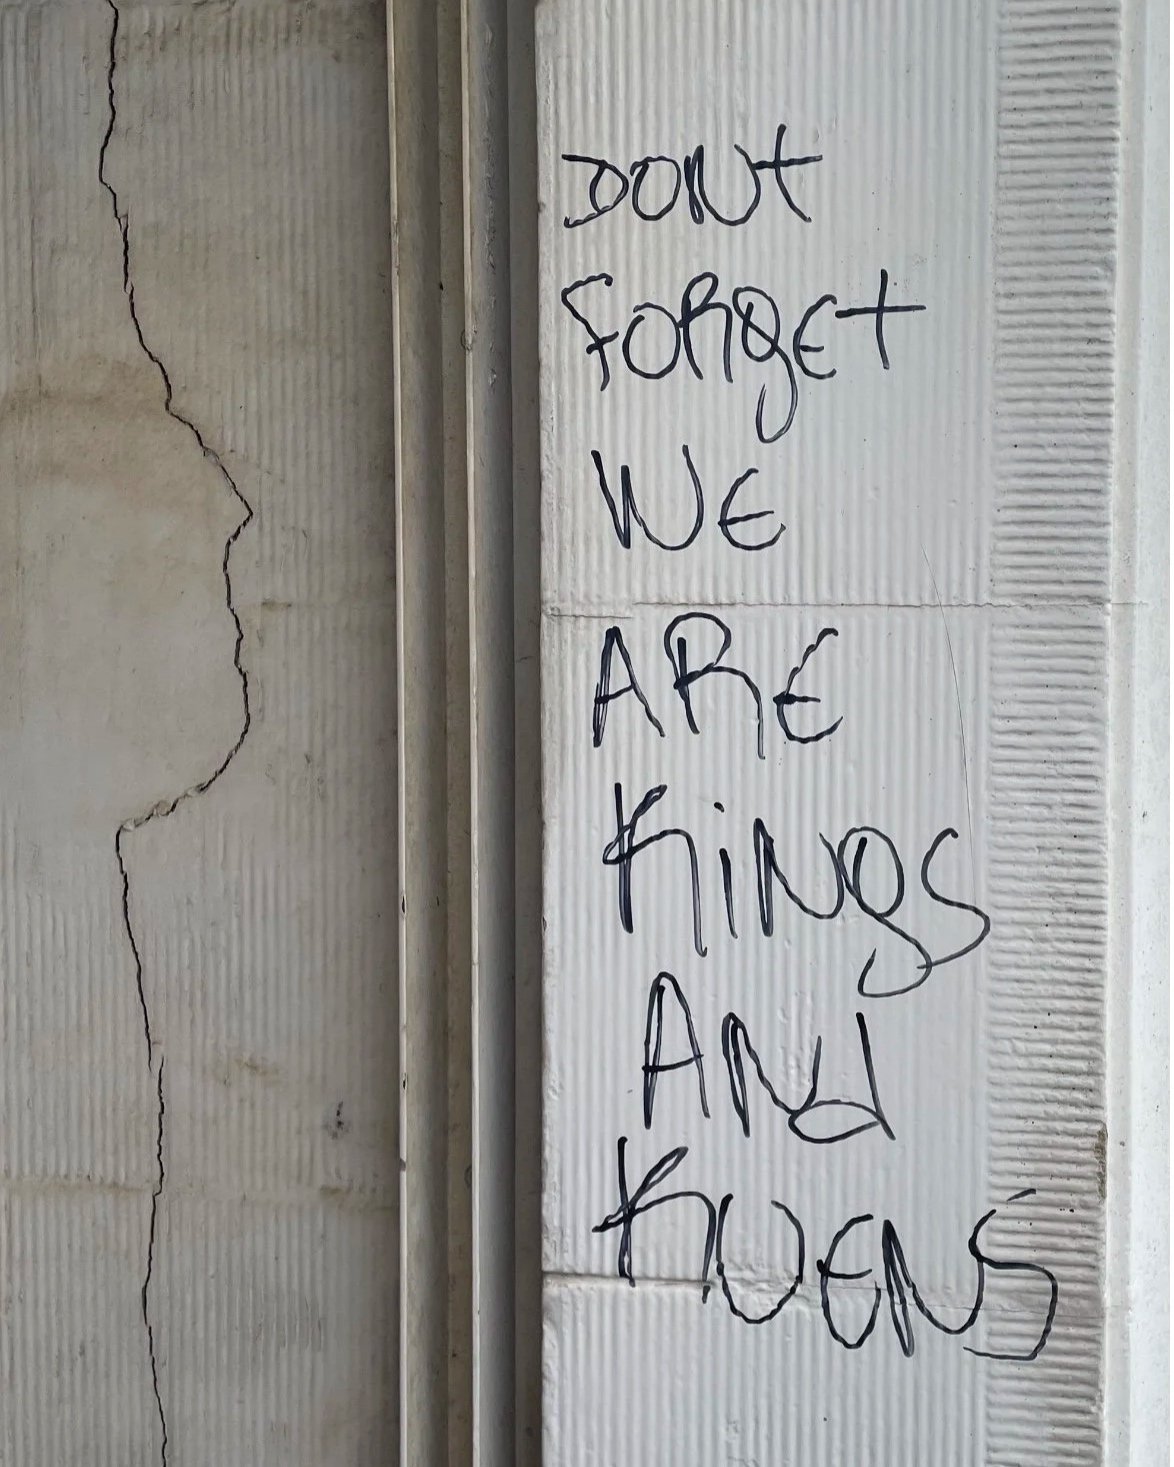 DONt
FORgEt
WE
ARE
KiNgS
ANd
KUENS